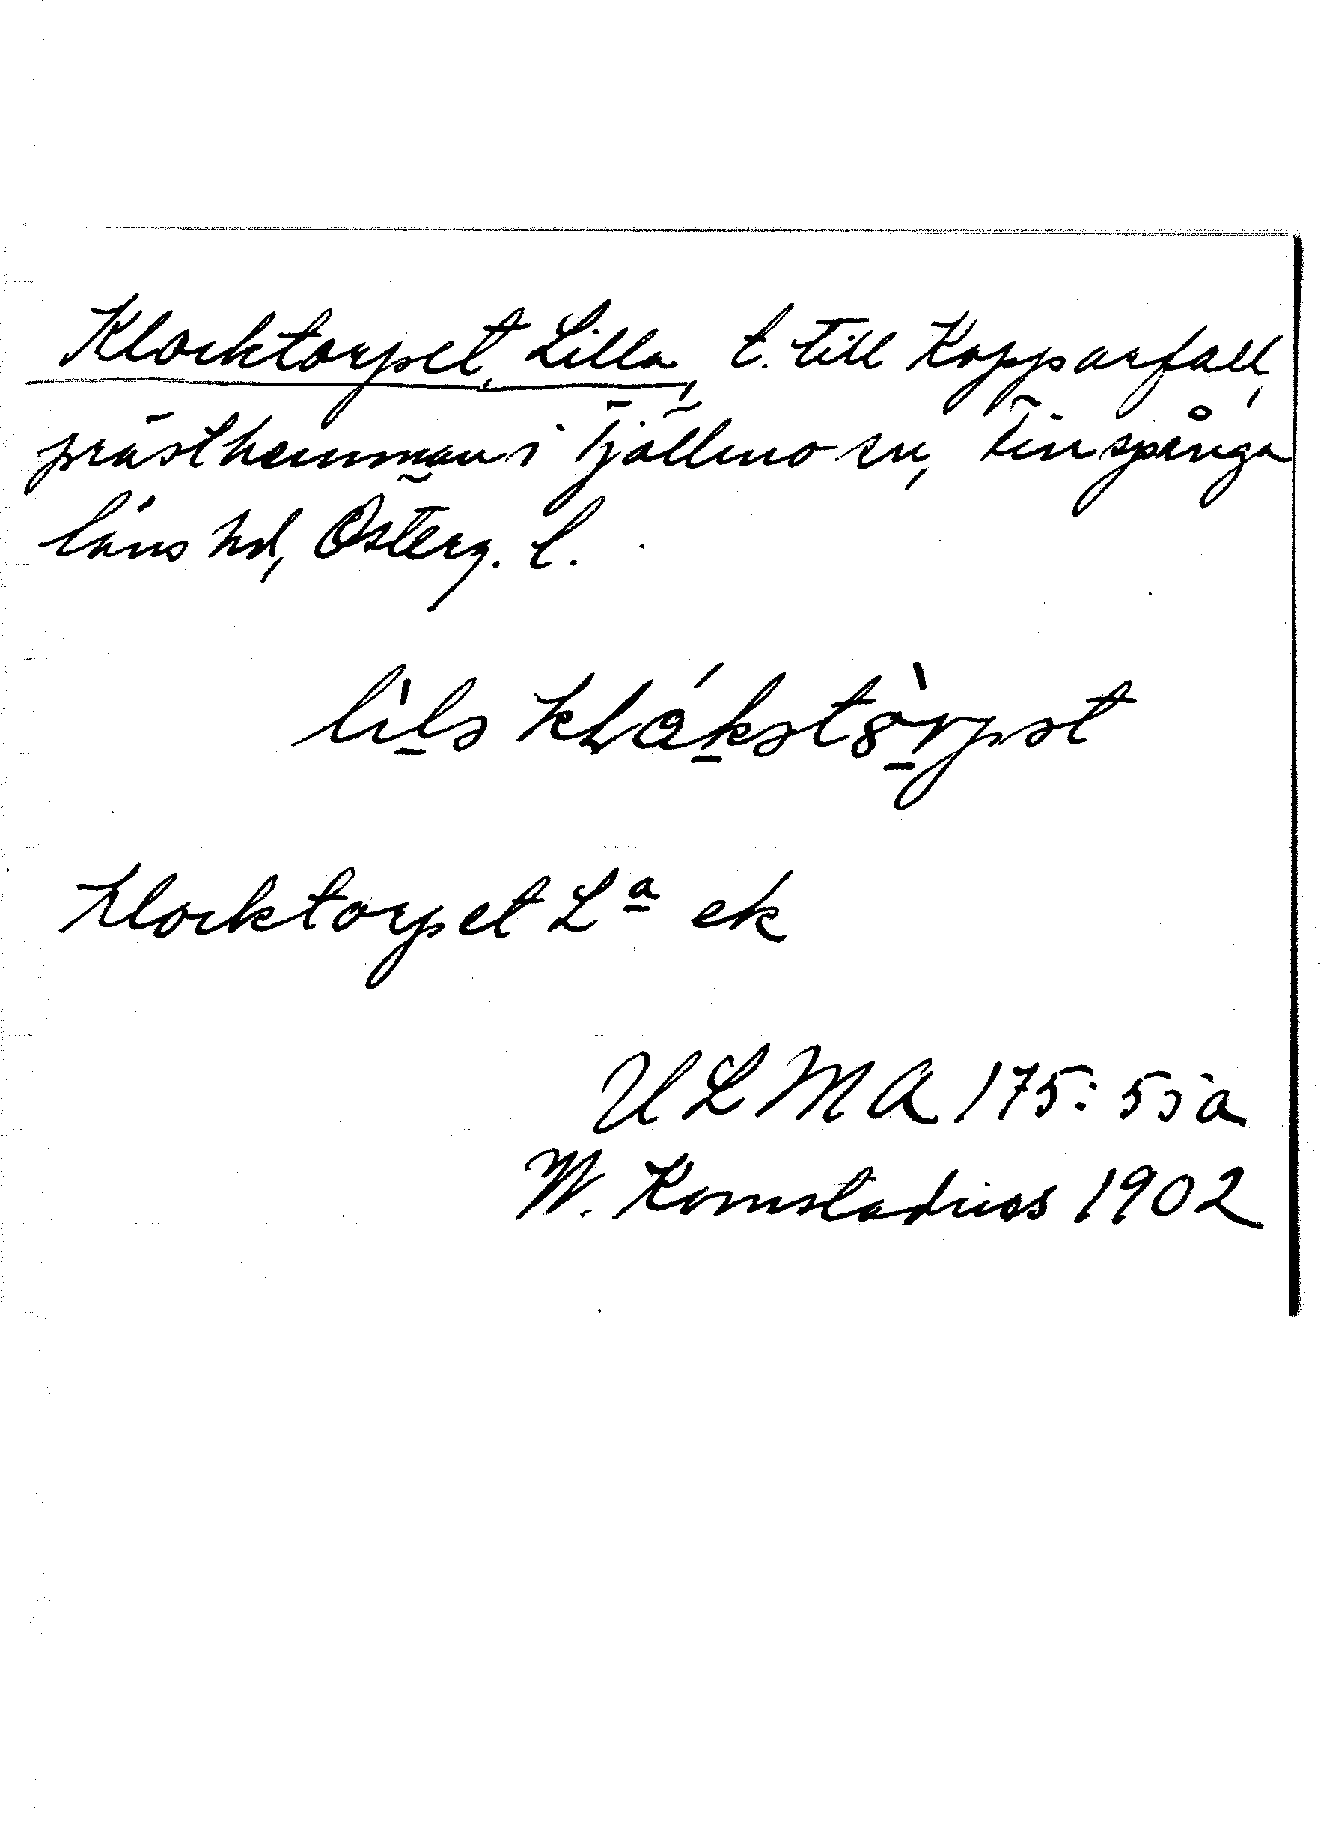 Klocktorpet, Lilla, t. till Kopparfall,
prästhemman i Tjällmo sn, Finspånga
läns hd, Österg. l.
Klocktorpet L:a ek
ULMA 175: 55a
W. Komstadius 1902